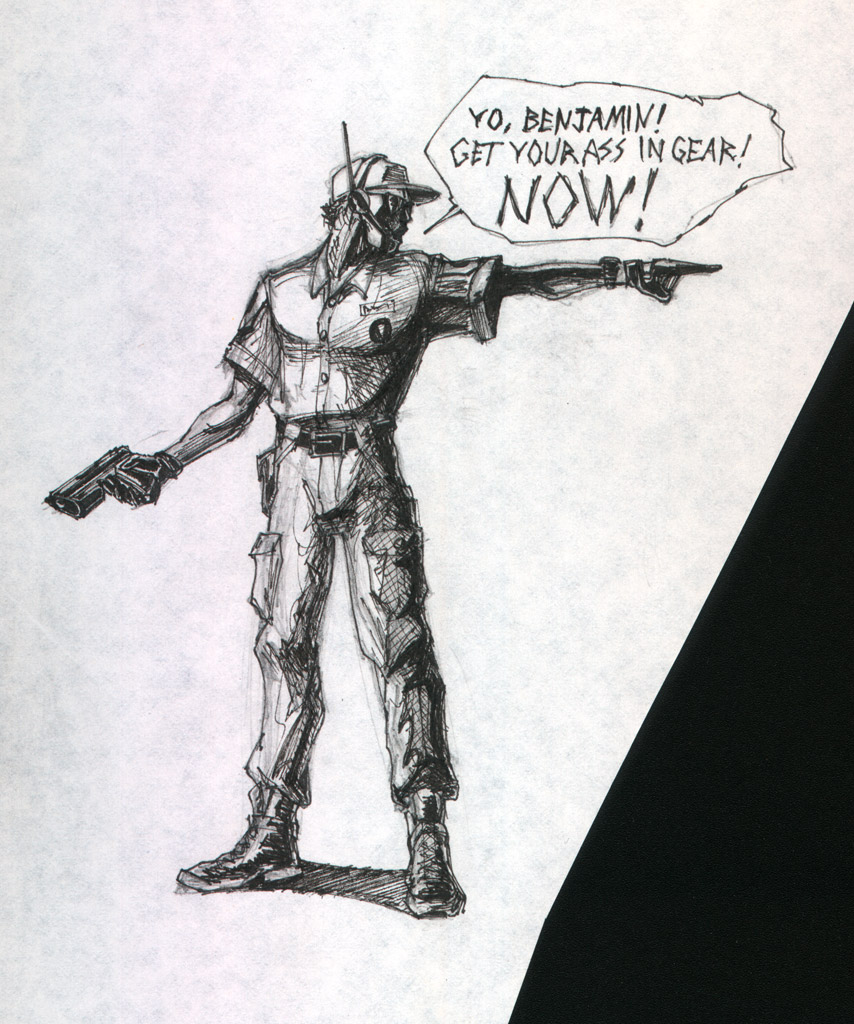 YO, BENJAMIN!
GET YOUR ASS IN GEAR!
NOW!